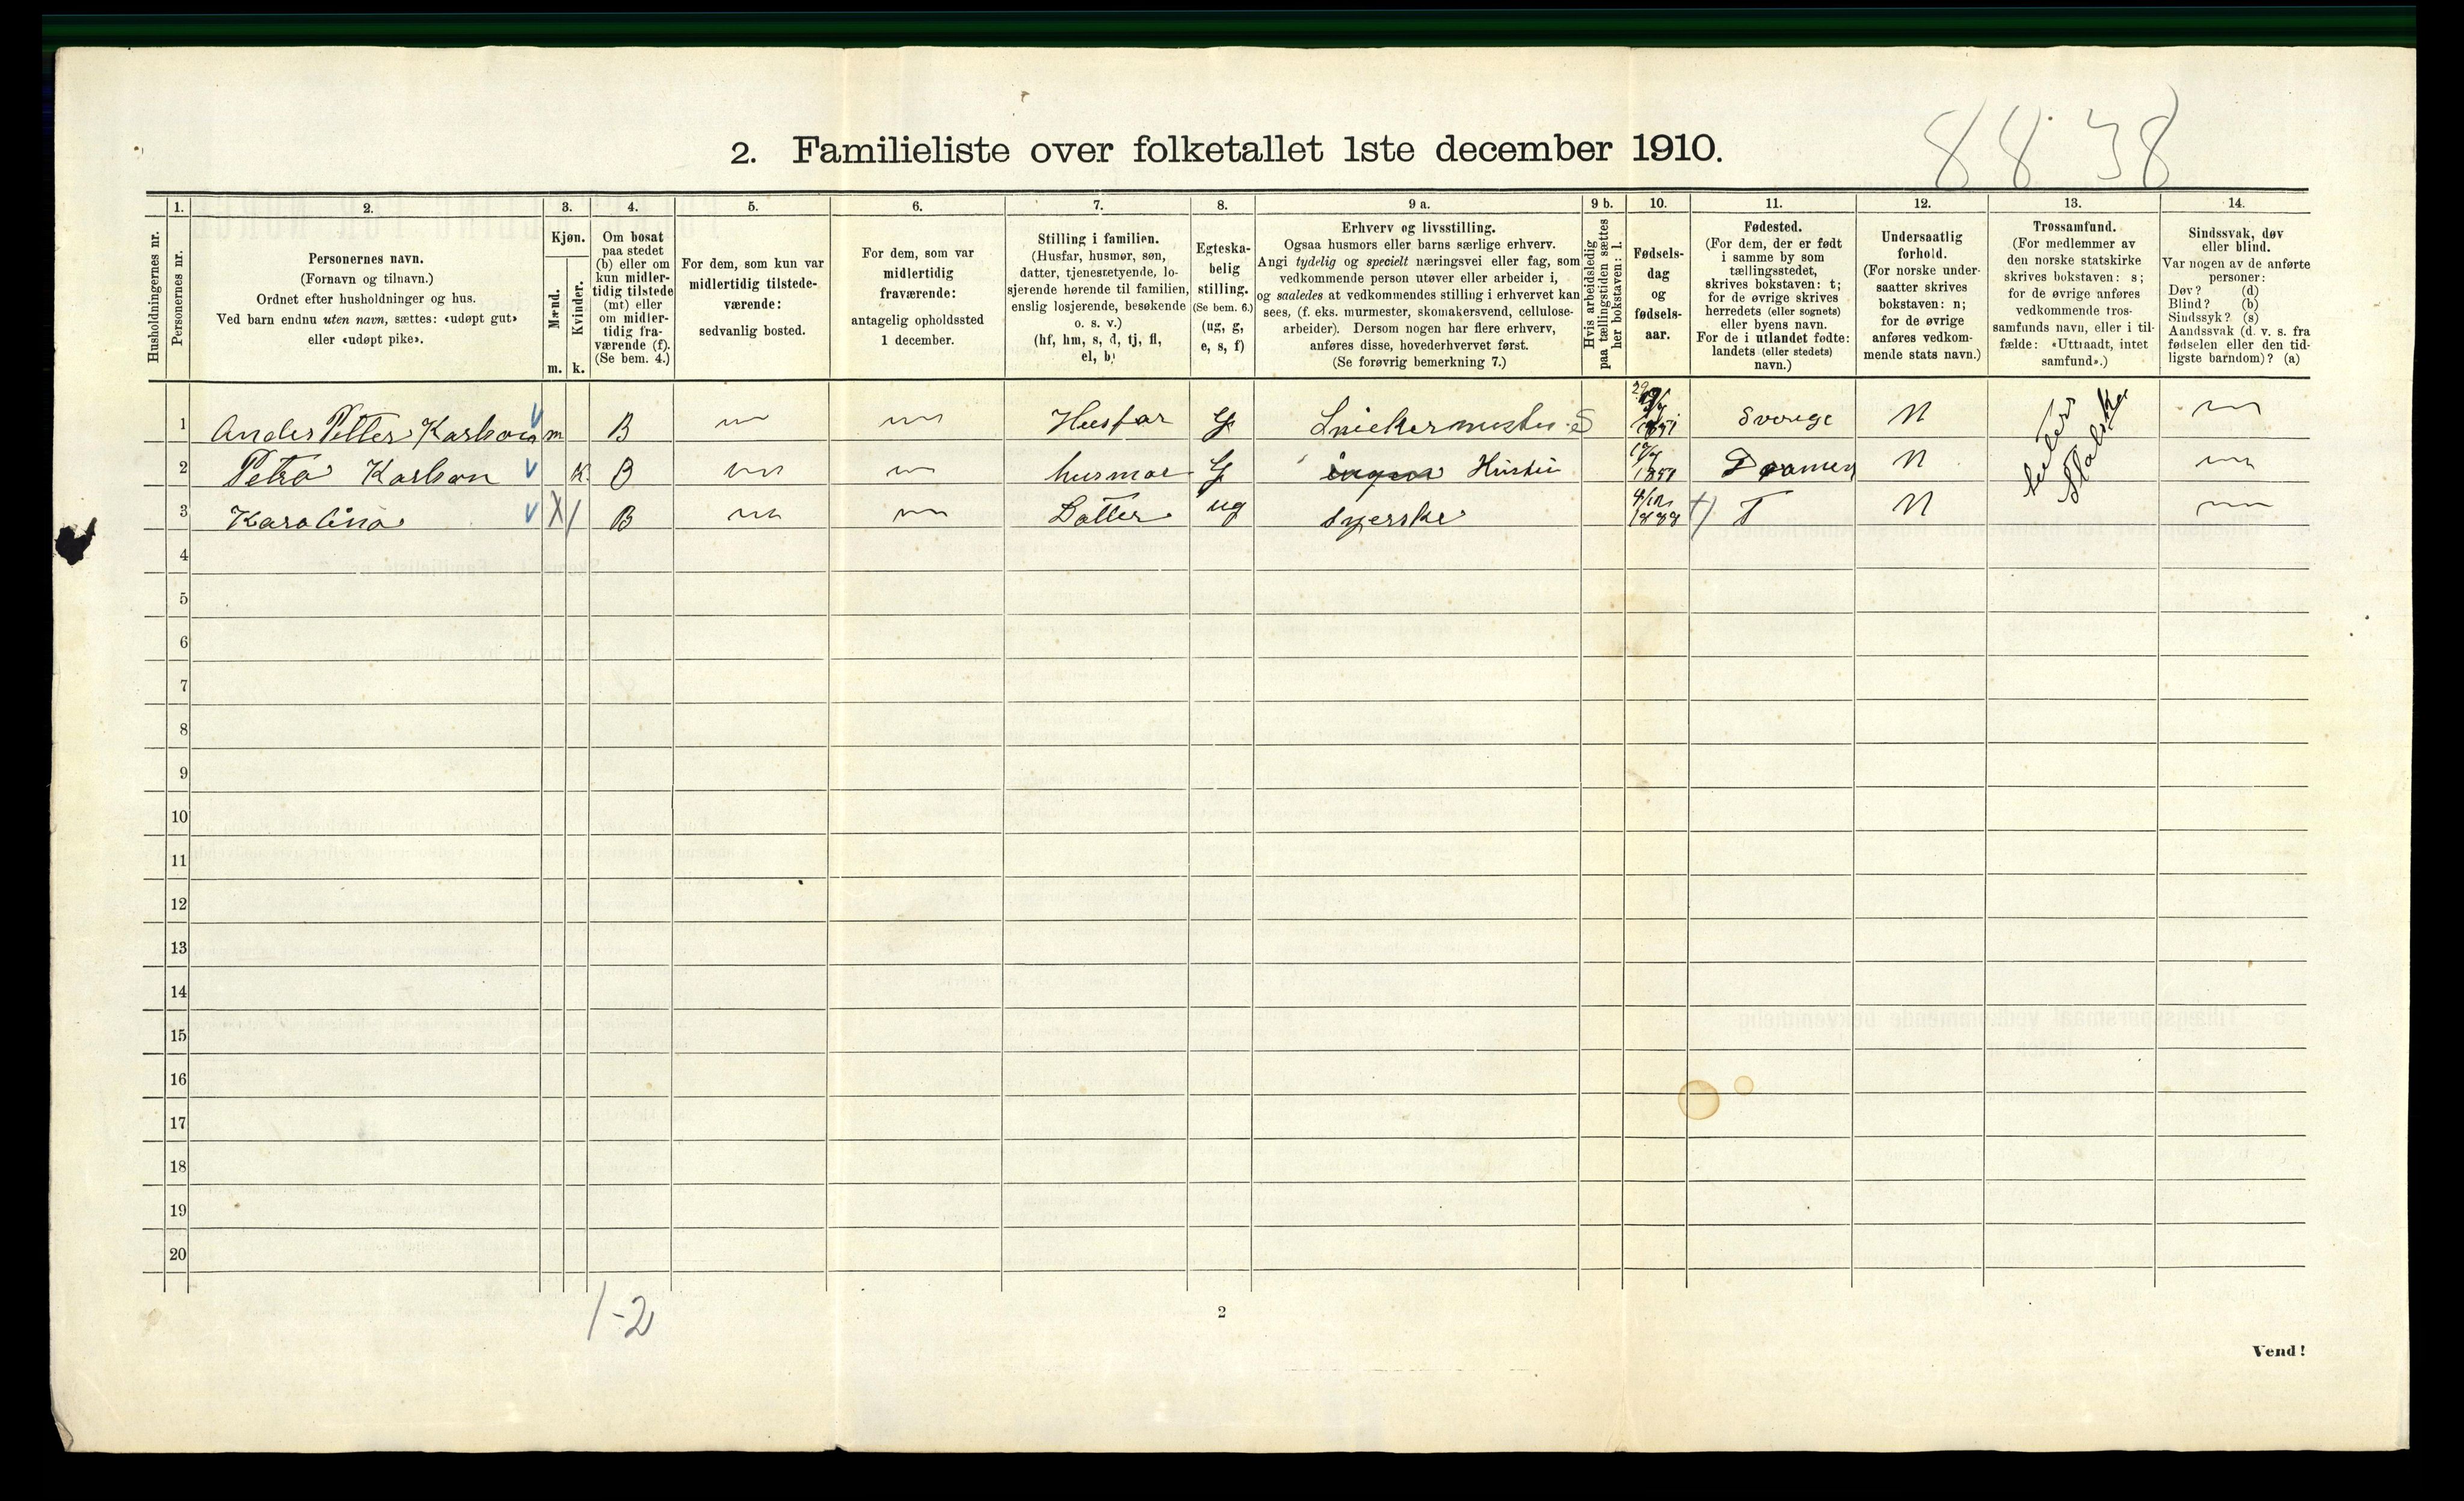 88 38
2. Familieliste over folketallet 1ste december 1910.
Husholdningernes nr.
1.
Personernes nr.
2.
Personernes navn.
(Fornavn og tilnavn.)
Ordnet efter husholdninger og hus.
Ved barn endnu uten navn, sættes: «udøpt gut»
eller «udøpt pike».
3.
Kjøn.
Mænd.
Kvinder.
m. k.
4.
Om bosat
paa stedet
(b) eller om
kun midler-
tidig tilstede
(mt) eller
om midler-
tidig fra-
værende (f).
(Se bem. 4.)
5.
For dem, som kun var
midlertidig tilstede-
værende:
sedvanlig bosted.
6.
For dem, som var
midlertidig
fraværende:
antagelig opholdssted
1 december.
7.
Stilling i familien.
(Husfar, husmor, søn,
datter, tjenestetyende, lo-
sjerende hørende til familien,
enslig losjerende, besøkende
o. s. v.)
(hf, hm, s, d, tj, fl,
el, b)
8.
Egteska-
belig
stilling.
(Se bem. 6.)
(ug, g,
e, s, f)
9 a.
Erhverv og livsstilling.
Ogsaa husmors eller barns særlige erhverv.
Angi tydelig og specielt næringsvei eller fag, som
vedkommende person utøver eller arbeider i,
og saaledes at vedkommendes stilling i erhvervet kan
sees, (f. eks. murmester, skomakersvend, cellulose-
arbeider). Dersom nogen har flere erhverv,
anføres disse, hovederhvervet først.
(Se forøvrig bemerkning 7.)
9 b.
Hvis arbeidsledig
paa tællingstiden sættes
her bokstaven: l.
10.
Fødsels-
dag
og
fødsels-
aar.
11.
Fødested.
(For dem, der er født
i samme by som
tællingsstedet,
skrives bokstaven: t;
for de øvrige skrives
herredets (eller sognets)
eller byens navn.
For de i utlandet fødte:
landets (eller stedets)
navn.)
12.
Undersaatlig
forhold.
(For norske under-
saatter skrives
bokstaven: n;
for de øvrige
anføres vedkom-
mende stats navn.)
13.
Trossamfund.
(For medlemmer av
den norske statskirke
skrives bokstaven: s;
for de øvrige anføres
vedkommende tros-
samfunds navn, eller i til-
fælde: «Uttraadt, intet
samfund».)
14.
Sindssvak, døv
eller blind.
Var nogen av de anførte
personer:
Døv? (d)
Blind? (b)
Sindssyk? (s)
Aandssvak (d. v. s. fra
fødselen eller den tid-
ligste barndom)? (a)
1 Anders Petter Karlson m B Husfar G Snickermester S Sverige N
2 Petra Karlson K B husmor G Hustru Dramen N
3 Karolina B Datter ug syerske 1888 T N
4
5
6
7
8
9
10
11
12
13
14
15
16
17
18
19
20
1-2
2
Vend!